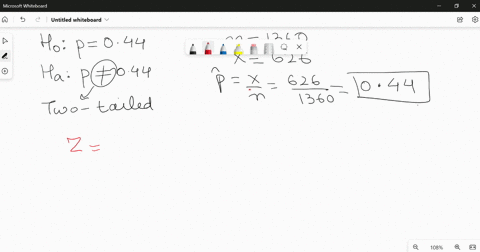 Microsoft Whiteboard
Untitled whiteboard
H₀: p = 0.44
Hₐ: p ≠ 0.44
Two-tailed
n = 1360
x = 626
p̂ = x/n = 626/1360 = 0.44
Z =
108%